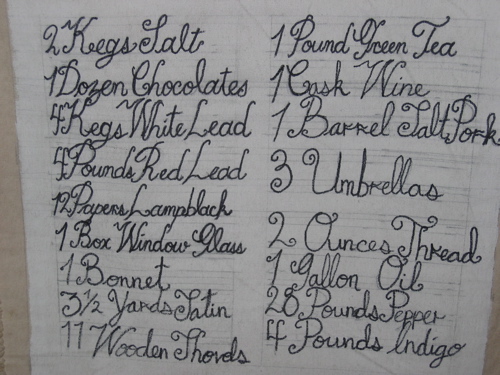 2 Kegs Salt
1 Dozen Chocolates
4 Kegs White Lead
4 Pounds Red Lead
12 Papers Lampblack
1 Box Window Glass
1 Bonnet
3½ Yards Satin
11 Wooden Shovels
1 Pound Green Tea
1 Cask Wine
1 Barrel Salt Pork
3 Umbrellas
2 Ounces Thread
1 Gallon Oil
28 Pounds Pepper
4 Pounds Indigo